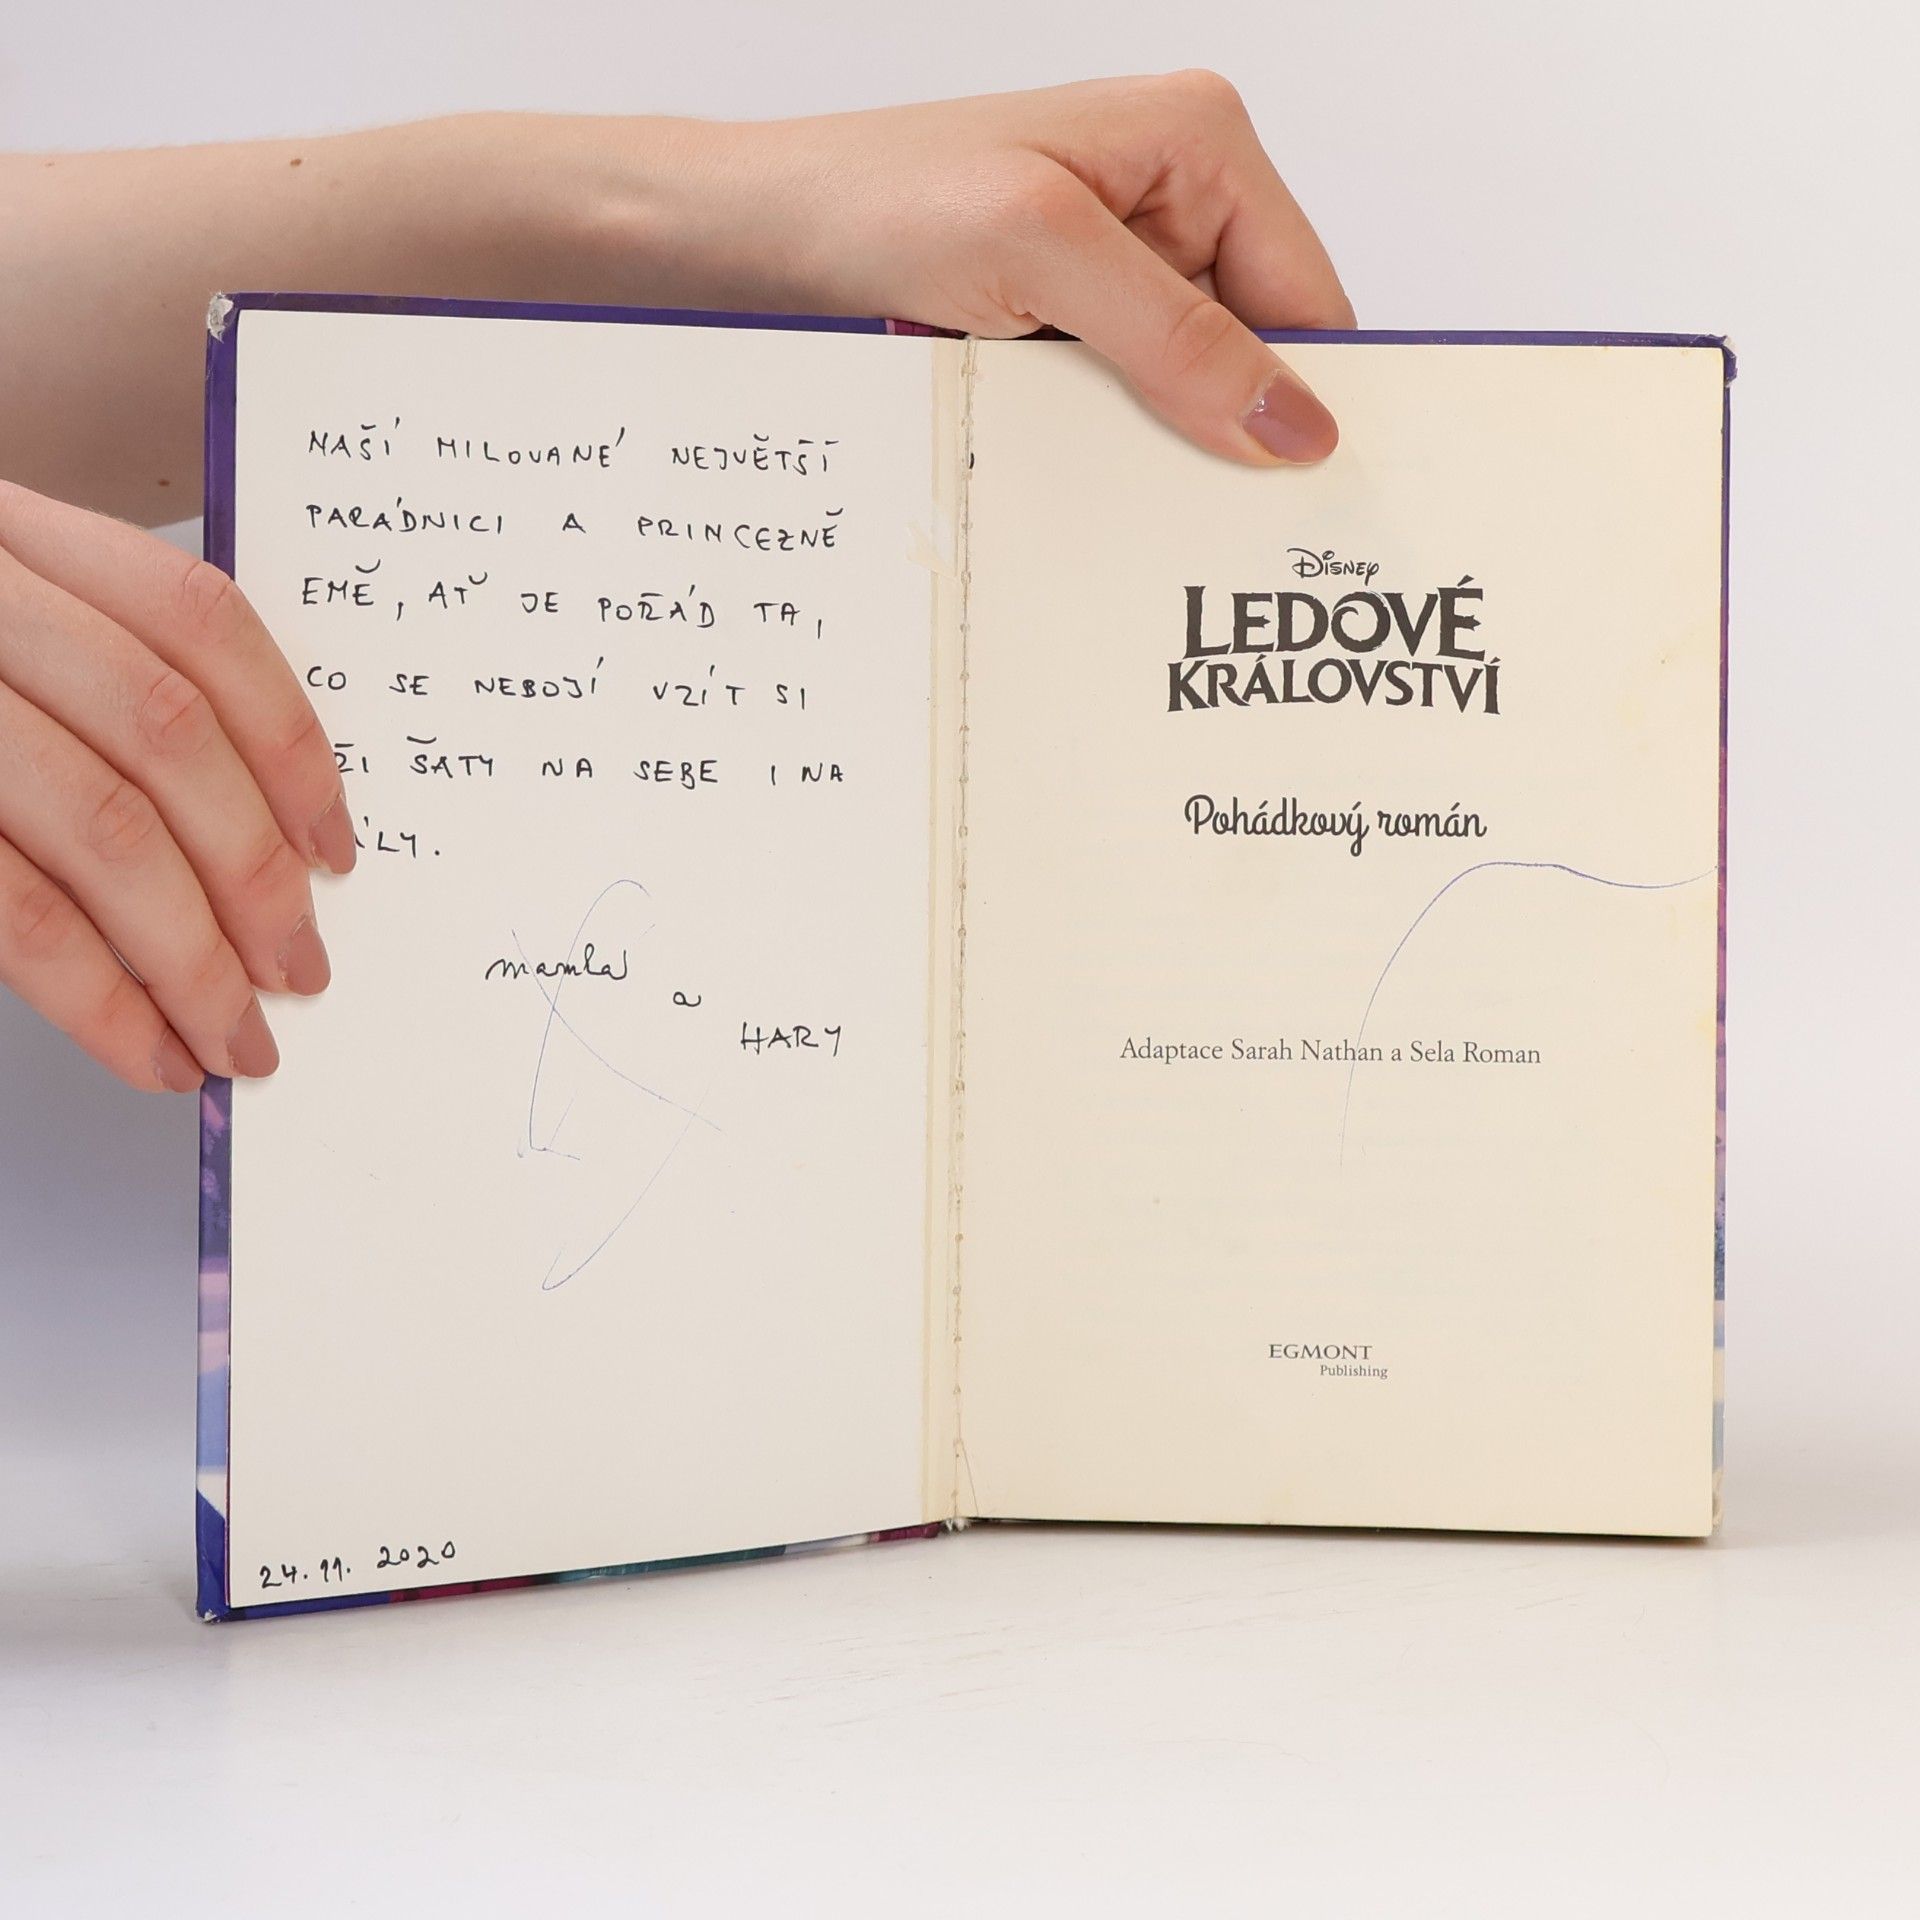 NAŠÍ MILOVANÉ NEJVĚTŠÍ
PARÁDNICI A PRINCEZNĚ
EMĚ, AŤ JE POŘÁD TA,
CO SE NEBOJÍ VZÍT SI
ŠATY NA SEBE I NA
.
a
HARY
24. 11. 2020
Disney
LEDOVÉ
KRÁLOVSTVÍ
Pohádkový román
Adaptace Sarah Nathan a Sela Roman
EGMONT
Publishing